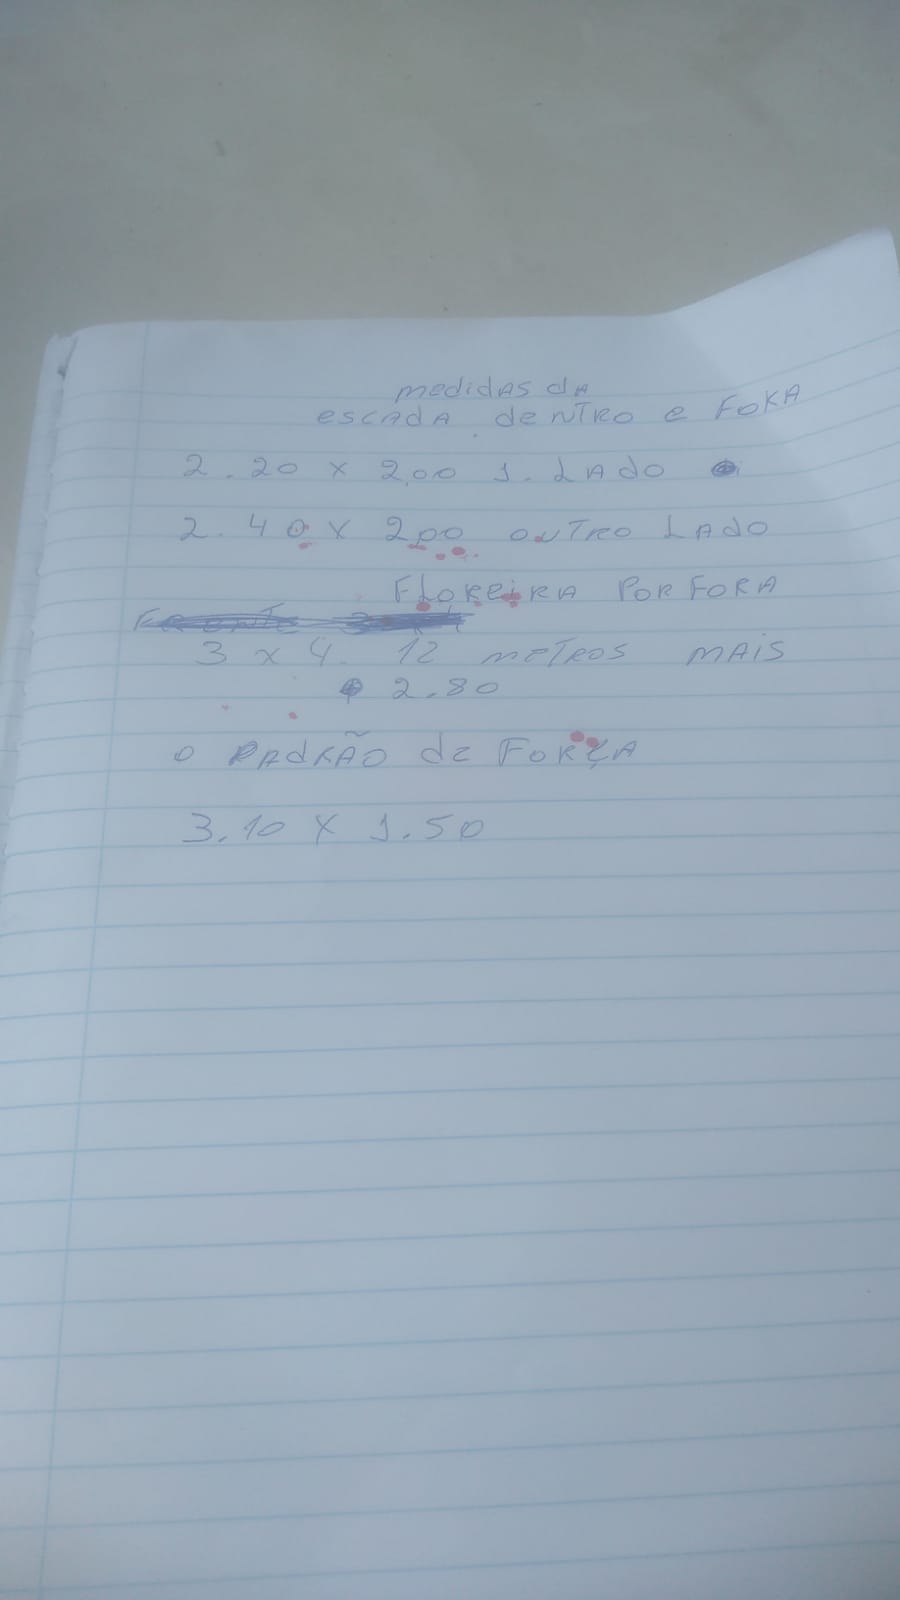 medidas da
escada dentro e FORA
2.20 x 2,00 1. LADO
2.40 x 200 outro LADO
Floreira POR FORA
3 x 4. 12 metros mais
2.80
o PADRÃO de FORÇA
3.10 X 1.50